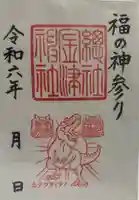 福の神参り
總社
金津
神社
令和六年　月　日